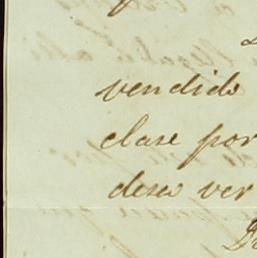 vendido
clase por
deseo ver